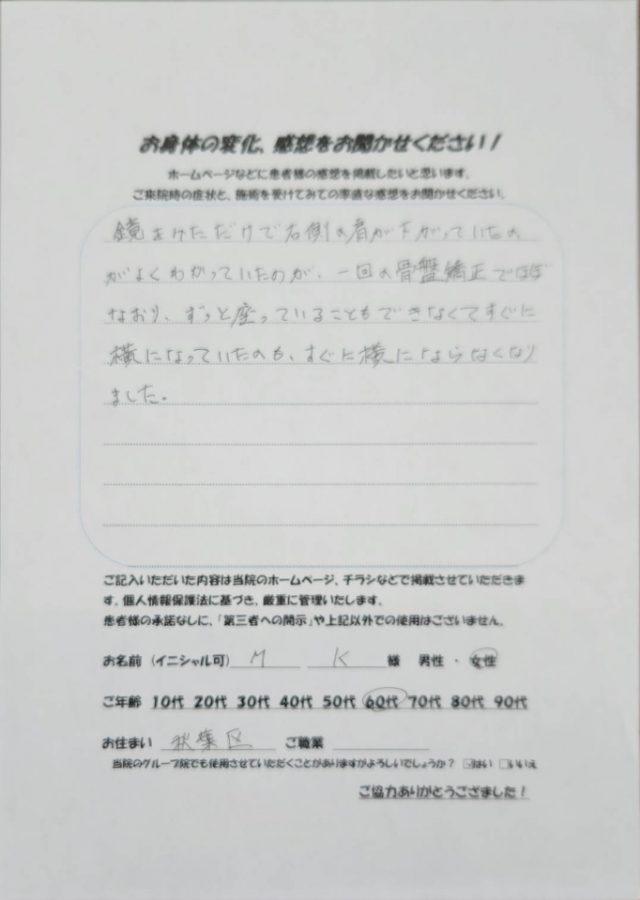 お身体の変化、感想をお聞かせください！
ホームページなどに患者様の感想を掲載したいと思います。
ご来院時の症状と、施術を受けてみての率直な感想をお聞かせください。
鏡をみただけで右側の肩が下がっていたの
がよくわかっていたのが、一回の骨盤矯正でほぼ
なおり、ずっと座っていることもできなくてすぐに
横になっていたのも、すぐに横にならなくなり
ました。
ご記入いただいた内容は当院のホームページ、チラシなどで掲載させていただきま
す。個人情報保護法に基づき、厳重に管理いたします。
患者様の承諾なしに、「第三者への開示」や上記以外での使用はございません。
お名前（イニシャル可） M K 様 男性 ・ 女性
ご年齢 10代 20代 30代 40代 50代 60代 70代 80代 90代
お住まい 秋葉区 ご職業
当院のグループ院でも使用させていただくことがありますがよろしいでしょうか？ ☑はい □いいえ
ご協力ありがとうござました！